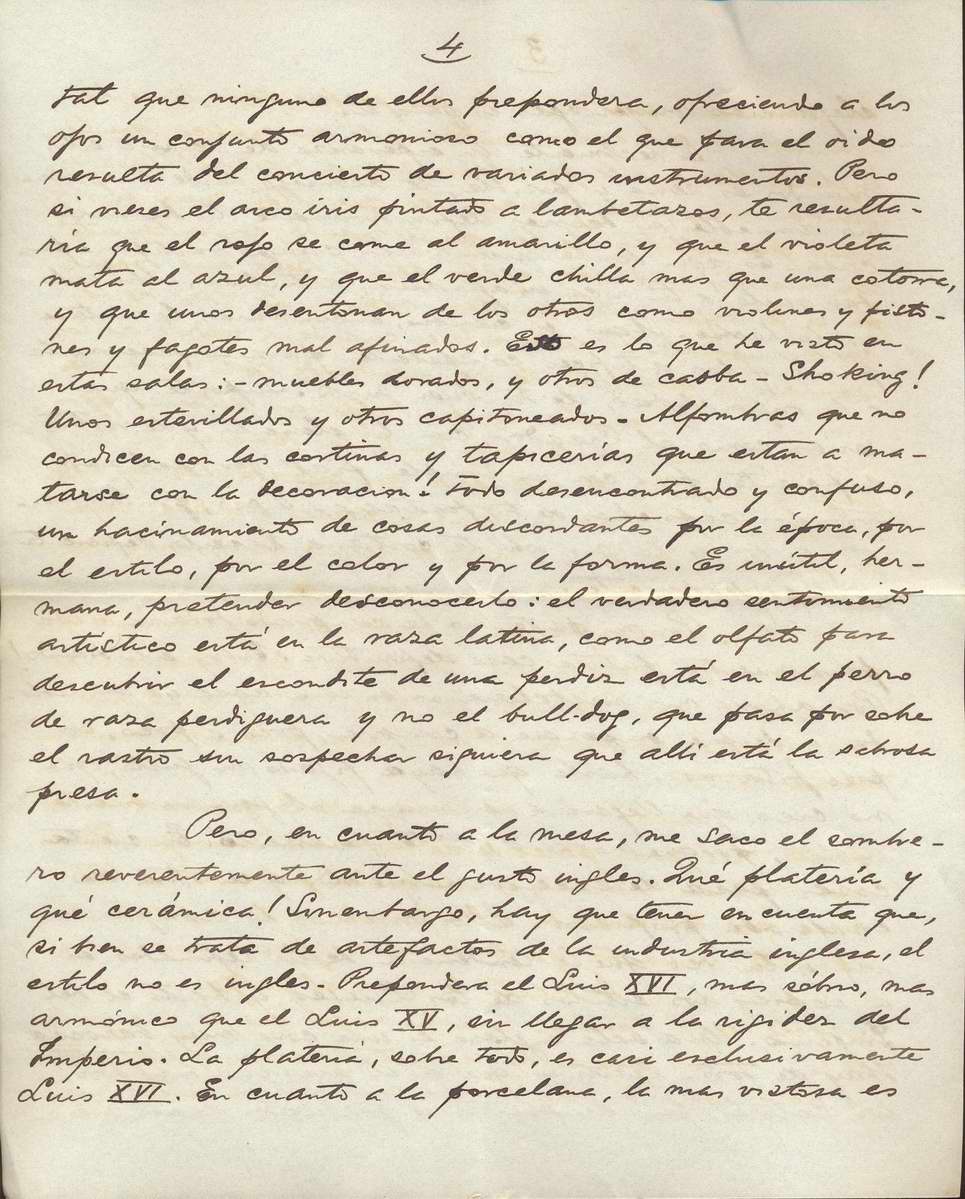 4
tal que ninguno de ellos prepondera, ofreciendo a los
ojos un conjunto armonioso como el que para el oido
resulta del concierto de variados instrumentos. Pero
si vieses el arco iris pintado a lambetazos, te resulta-
ría que el rojo se come al amarillo, y que el violeta
mata al azul, y que el verde chilla mas que una cotorra,
y que unos desentonan de los otros como violines y pisto-
nes y fagotes mal afinados. Esto es lo que he visto en
estas salas: - muebles dorados, y otros de caoba - Shoking!
Unos esterillados y otros capitoneados - Alfombras que no
condicen con las cortinas y tapicerías que estan a ma-
tarse con la decoracion! Todo desencontrado y confuso,
un hacinamiento de cosas discordantes por la época, por
el estilo, por el color y por la forma. Es inútil, her-
mana, pretender desconocerlo: el verdadero sentimiento
artístico está en la raza latina, como el olfato para
descubrir el escondite de una perdiz está en el perro
de raza perdiguera y no el bull-dog, que pasa por sobre
el rastro sin sospechar siquiera que allí está la sabrosa
presa.
Pero, en cuanto a la mesa, me saco el sombre-
ro reverentemente ante el gusto ingles. Qué platería y
qué cerámica! Sinembargo, hay que tener en cuenta que,
si bien se trata de artefactos de la industria inglesa, el
estilo no es ingles - Prepondera el Luis XVI, mas sóbrio, mas
armónico que el Luis XV, sin llegar a la rigidez del
Imperio. La platería, sobre todo, es casi esclusivamente
Luis XVI. En cuanto a la porcelana, la mas vistosa es